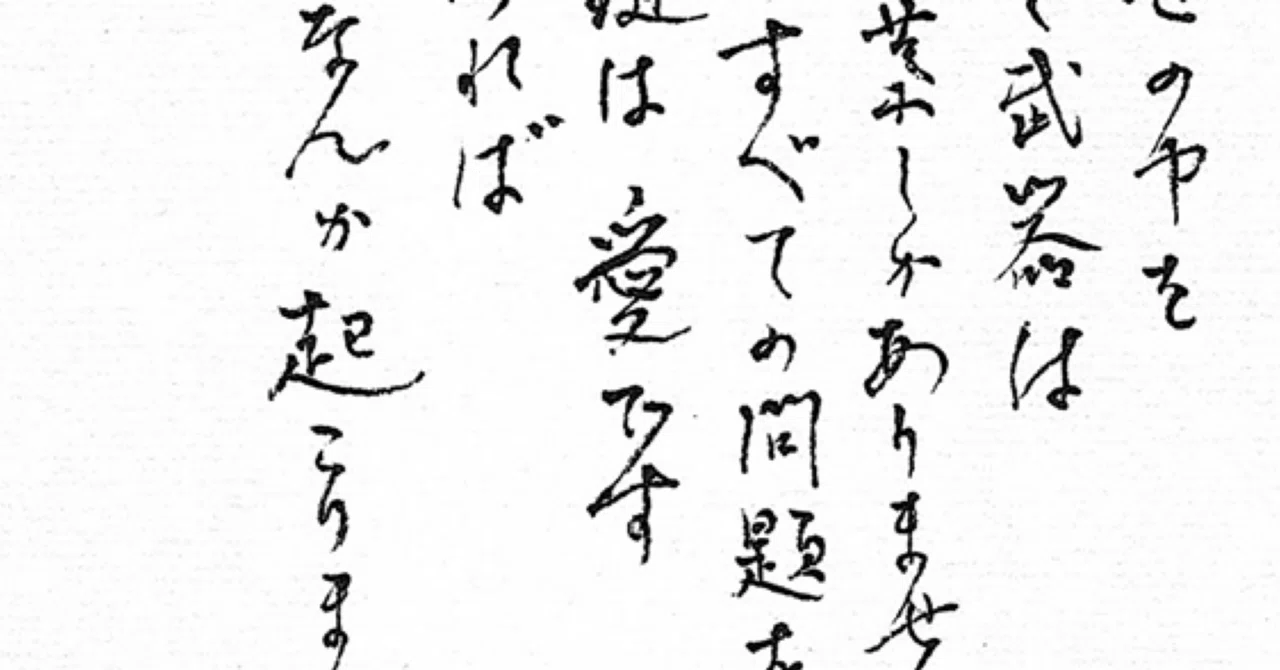 の中を
武器は
葉しかありませ
すべての問題を
鍵は愛です
れば
なんか起こりま